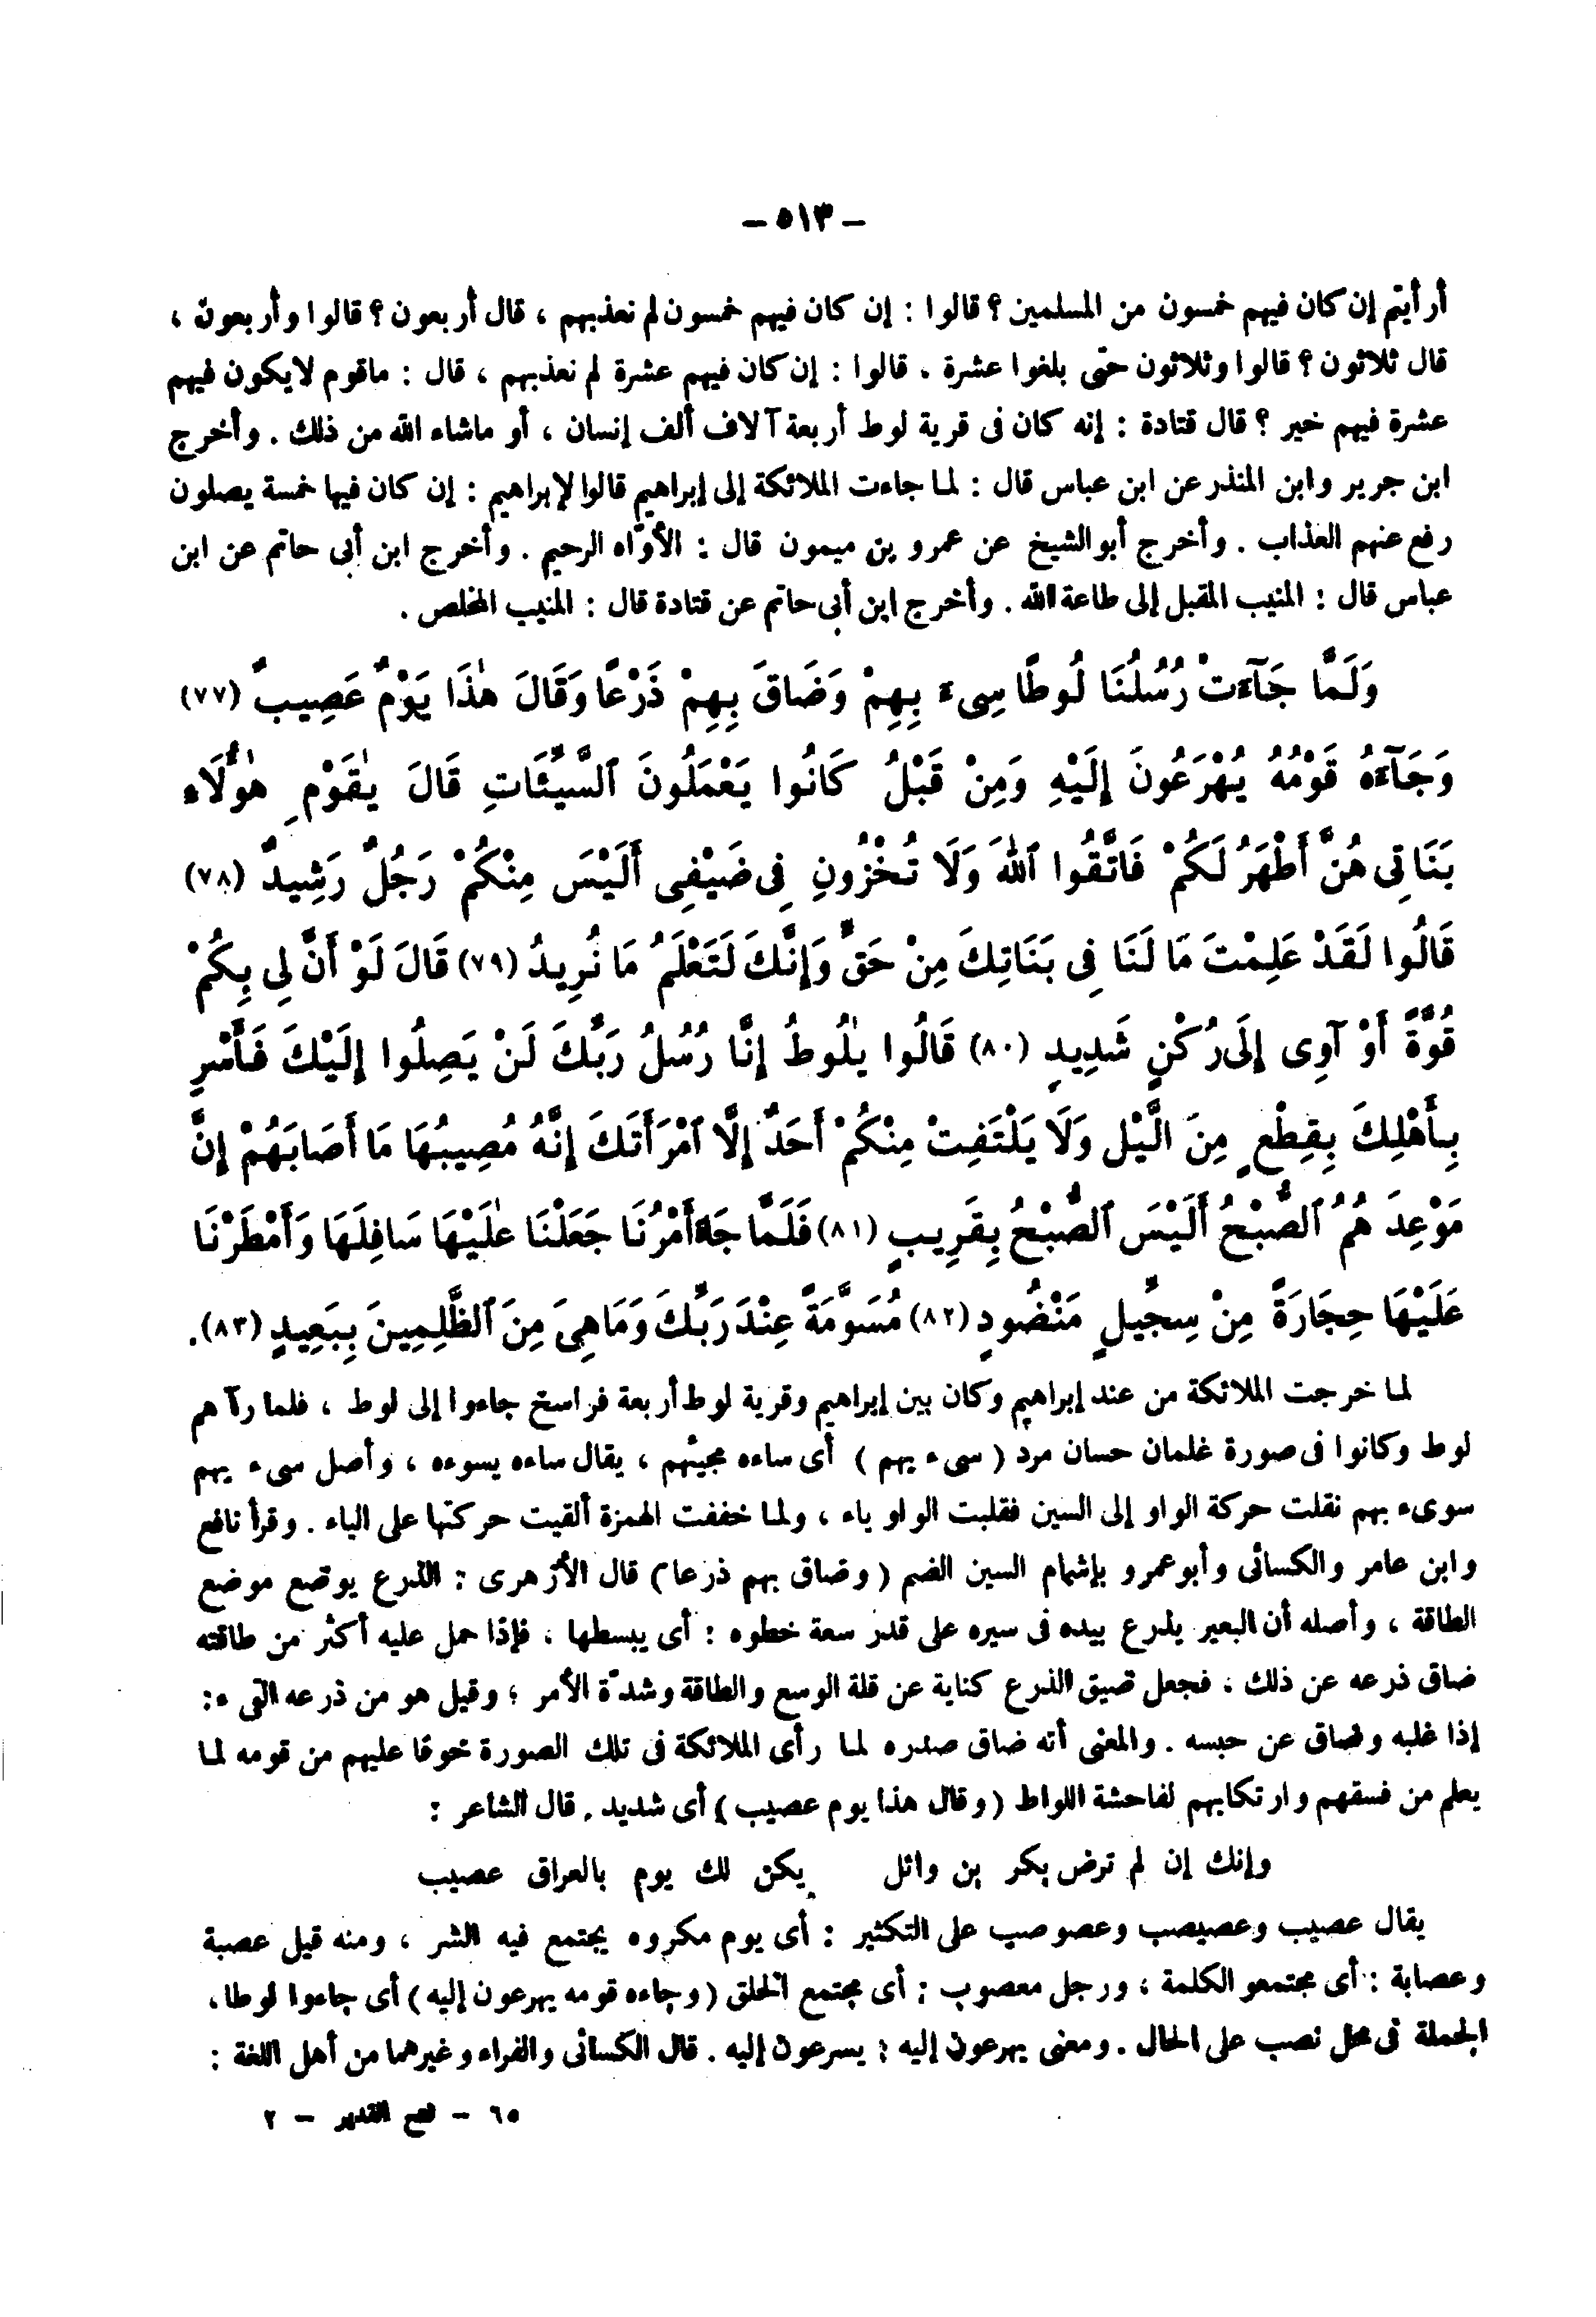 - ٥١٣ -
أرأيتم إن كان فيهم خمسون من المسلمين ؟ قالوا : إن كان فيهم خمسون لم نعذبهم ، قال أربعون ؟ قالوا وأربعون ،
قال ثلاثون ؟ قالوا وثلاثون حتّى بلغوا عشرة . قالوا : إن كان فيهم عشرة لم نعذبهم ، قال : ماقوم لايكون فيهم
عشرة فيهم خير ؟ قال قتادة : إنه كان فى قرية لوط أربعة آلاف ألف إنسان ، أو ماشاء الله من ذلك . وأخرج
ابن جرير وابن المنذر عن ابن عباس قال : لما جاءت الملائكة إلى إبراهيم قالوا لإبراهيم : إن كان فيها خمسة يصلون
رفع عنهم العذاب . وأخرج أبوالشيخ عن عمرو بن ميمون قال : الأوّاه الرحيم . وأخرج ابن أبى حاتم عن ابن
عباس قال : المنيب المقبل إلى طاعة الله . وأخرج ابن أبى حاتم عن قتادة قال : المنيب المخلص .
وَلَمَّا جَآءَتْ رُسُلُنَا لُوطًا سِىءَ بِهِمْ وَضَاقَ بِهِمْ ذَرْعًا وَقَالَ هٰذَا يَوْمٌ عَصِيبٌ (٧٧)
وَجَآءَهُ قَوْمُهُ يُهْرَعُونَ إِلَيْهِ وَمِنْ قَبْلُ كَانُوا يَعْمَلُونَ ٱلسَّيِّئَاتِ قَالَ يٰقَوْمِ هٰؤُلَاءِ
بَنَاتِى هُنَّ أَطْهَرُ لَكُمْ فَاتَّقُوا ٱللهَ وَلَا تُخْزُونِ فِى ضَيْفِى أَلَيْسَ مِنْكُمْ رَجُلٌ رَشِيدٌ (٧٨)
قَالُوا لَقَدْ عَلِمْتَ مَا لَنَا فِى بَنَاتِكَ مِنْ حَقٍّ وَإِنَّكَ لَتَعْلَمُ مَا نُرِيدُ (٧٩) قَالَ لَوْ أَنَّ لِى بِكُمْ
قُوَّةً أَوْ آوِى إِلَى رُكْنٍ شَدِيدٍ (٨٠) قَالُوا يٰلُوطُ إِنَّا رُسُلُ رَبِّكَ لَنْ يَصِلُوا إِلَيْكَ فَأَسْرِ
بِأَهْلِكَ بِقِطْعٍ مِنَ الَّيْلِ وَلَا يَلْتَفِتْ مِنْكُمْ أَحَدٌ إِلَّا ٱمْرَأَتَكَ إِنَّهُ مُصِيبُهَا مَا أَصَابَهُمْ إِنَّ
مَوْعِدَهُمُ ٱلصُّبْحُ أَلَيْسَ ٱلصُّبْحُ بِقَرِيبٍ (٨١) فَلَمَّا جَاءَ أَمْرُنَا جَعَلْنَا عٰلَيْهَا سَافِلَهَا وَأَمْطَرْنَا
عَلَيْهَا حِجَارَةً مِنْ سِجِّيلٍ مَنْضُودٍ (٨٢) مُسَوَّمَةً عِنْدَ رَبِّكَ وَمَاهِىَ مِنَ ٱلظَّلِمِينَ بِبَعِيدٍ (٨٣).
لما خرجت الملائكة من عند إبراهيم وكان بين إبراهيم وقرية لوط أربعة فراسخ جاءوا إلى لوط ، فلما رآهم
لوط وكانوا فى صورة غلمان حسان مرد ( سىء بهم ) أى ساءه مجيئهم ، يقال ساءه يسوءه ، وأصل سىء بهم
سوىء بهم نقلت حركة الواو إلى السين فقلبت الواو ياء ، ولما خففت الهمزة ألقيت حركتها على الياء . وقرأ نافع
وابن عامر والكسائى وأبوعمرو بإشمام السين الضم ( وضاق بهم ذرعا ) قال الأزهرى : الذرع يوضع موضع
الطاقة ، وأصله أن البعير يذرع بيده فى سيره على قدر سعة خطوه : أى يبسطها ، فإذا حمل عليه أكثر من طاقته
ضاق ذرعه عن ذلك ، فجعل ضيق الذرع كناية عن قلة الوسع والطاقة وشدّة الأمر ؛ وقيل هو من ذرعه القىء :
إذا غلبه وضاق عن حبسه . والمعنى أنه ضاق صدره لما رأى الملائكة فى تلك الصورة خوفا عليهم من قومه لما
يعلم من فسقهم وارتكابهم لفاحشة اللواط ( وقال هذا يوم عصيب ) أى شديد . قال الشاعر :
وإنك إن لم ترض بكر بن وائل يكن لك يوم بالعراق عصيب
يقال عصيب وعصيصب وعصوصب على التكثير : أى يوم مكروه يجتمع فيه الشر ، ومنه قيل عصبة
وعصابة : أى مجتمعو الكلمة ، ورجل معصوب : أى مجتمع الخلق ( وجاءه قومه يهرعون إليه ) أى جاءوا لوطا ،
الجملة فى محل نصب على الحال . ومعنى يهرعون إليه : يسرعون إليه . قال الكسائى والفراء وغيرهما من أهل اللغة :
٦٥ - فتح القدير - ٢